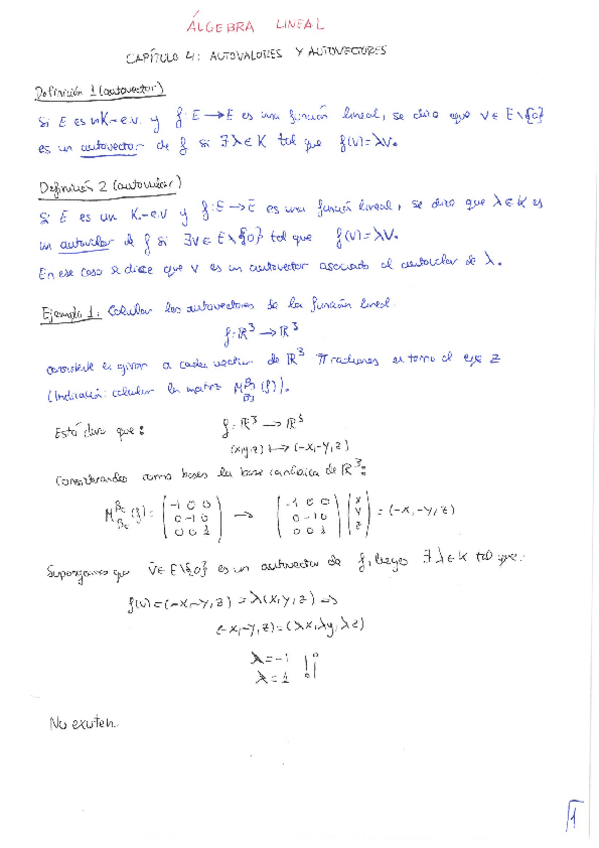 ÁLGEBRA LINEAL
CAPÍTULO 4: AUTOVALORES Y AUTOVECTORES
Definición 1 (autovector)
Si E es un K-e.v. y f: E → E es una función lineal, se dice que v ∈ E\{0}
es un autovector de f si ∃ λ ∈ K tal que f(v)=λv.
Definición 2 (autovalor)
Si E es un K-e.v y f: E → E es una función lineal, se dice que λ ∈ K es
un autovalor de f si ∃ v ∈ E\{0} tal que f(v)=λv.
En ese caso se dice que v es un autovector asociado al autovalor de λ.
Ejemplo 1: Calcular los autovectores de la función lineal
f: ℝ³ → ℝ³
consistente en girar a cada vector de ℝ³ π radianes en torno al eje z
(Indicación: calcular la matriz (f)).
Está claro que: f: ℝ³ → ℝ³
(x,y,z) ↦ (-x,-y,z)
Considerando como bases la base canónica de ℝ³:
M^{Bc}_{Bc}(f) = (-1 0 0 / 0 -1 0 / 0 0 1) → (-1 0 0 / 0 -1 0 / 0 0 1) (x / y / z) = (-x, -y, z)
Supongamos que v ∈ E\{0} es un autovector de f, luego ∃ λ ∈ K tal que:
f(v)=(-x,-y,z) = λ(x,y,z) ⇒
(-x,-y,z)=(λx,λy,λz)
λ=-1
λ=1
No existen.
1